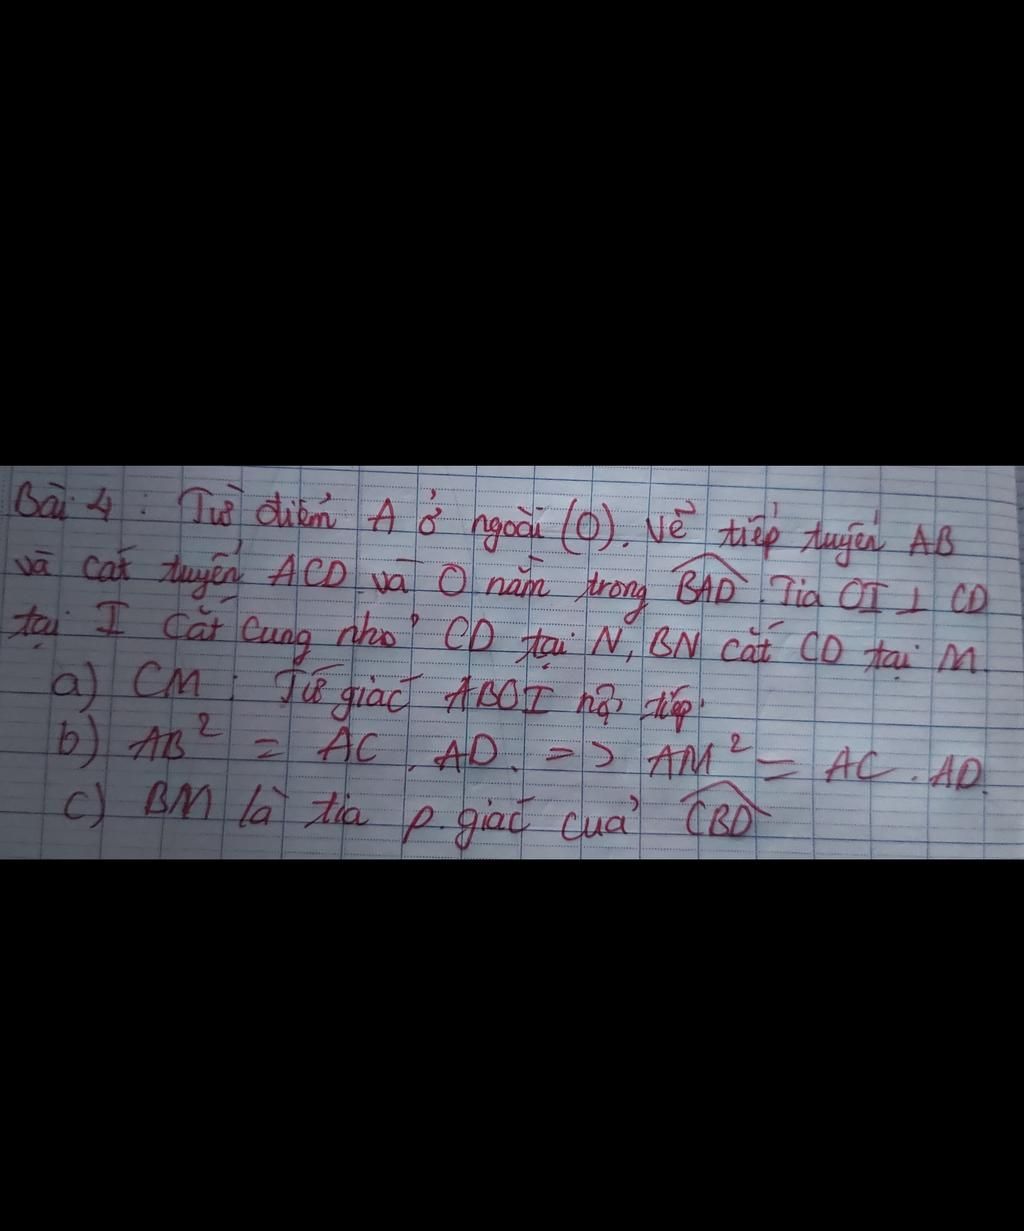 Bài 4 : Từ điểm A ở ngoài (O). Vẽ tiếp tuyến AB
và cát tuyến ACD và O nằm trong BAD. Tia OI ⊥ CD
tại I cắt cung nhỏ CD tại N, BN cắt CD tại M.
a) CM : Tứ giác ABOI nội tiếp.
b) AB² = AC . AD. => AM² = AC . AD.
c) BM là tia p. giác của CBD